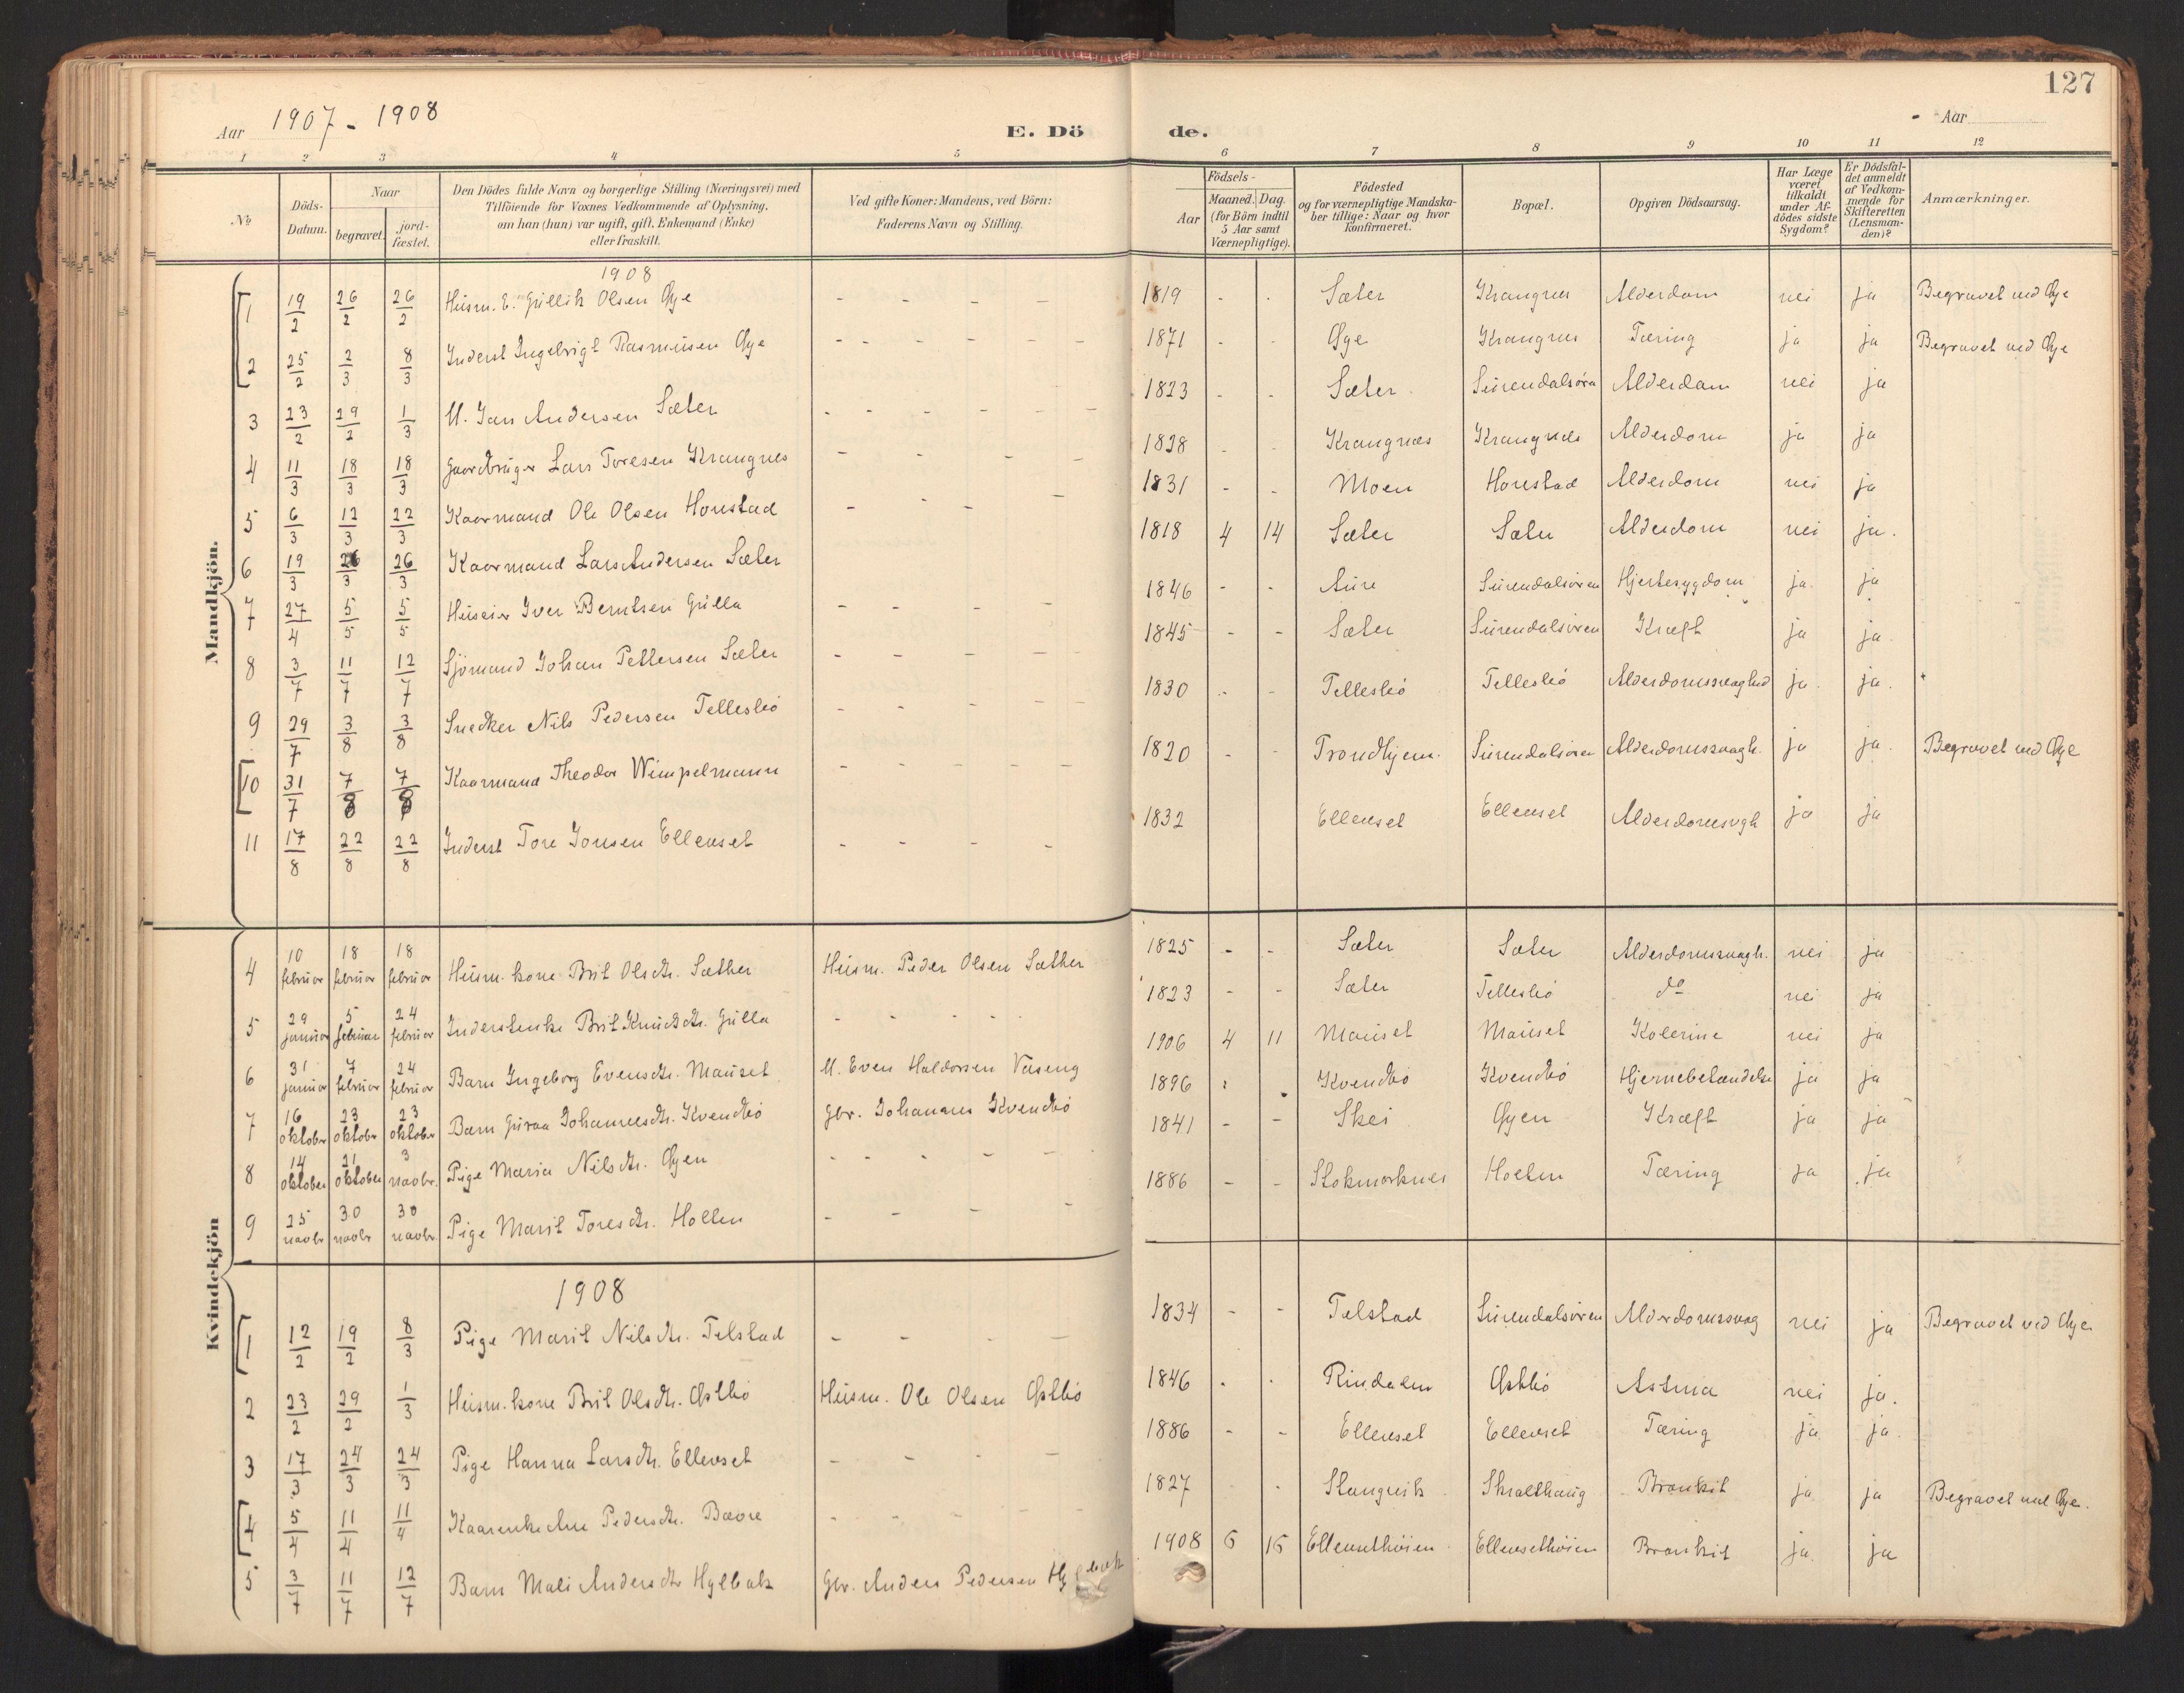 127
Aar 1907 - 1908 E. Dö de. Aar
1 2 3 4 5 6 7 8 9 10 11 12
No. Döds-Datum. Naar begravet. jord-fæstet. Den Dödes fulde Navn og borgerlige Stilling (Næringsvei) med Tilföiende for Voxnes Vedkommende af Oplysning, om han (hun) var ugift, gift, Enkemand (Enke) eller fraskilt. Ved gifte Koner: Mandens, ved Börn: Faderens Navn og Stilling. Födsels- Aar Maaned. Dag. (for Börn indtil 5 Aar samt Værnepligtige). Födested og for værnepligtige Mandskaber tillige: Naar og hvor konfirmeret. Bopæl. Opgiven Dödsaarsag. Har Læge været tilkaldt under Afdödes sidste Sygdom? Er Dödsfaldet anmeldt af Vedkommende for Skifteretten (Lensmanden)? Anmærkninger.
Mandkjön.
1908
1 19/2 26/2 26/2 Husm. E. Gullik Olsen Øye - - - - 1819 - - Sæter Krangnes Alderdom nei ja Begravet ved Øye
2 25/2 2/3 8/3 Inderst Ingebrigt Rasmusen Øye - - - - - 1871 - - Øye Krangnes Tæring ja ja Begravet ved Øye
3 23/2 29/2 1/3 U. Jan Andersen Sæter - - - - - 1823 - - Sæter Surendalsöra Alderdom nei ja
4 11/3 18/3 18/3 Gaardbruger Lars Toresen Krangnes - - - - 1828 - - Krangnæs Krangnæs Alderdom ja ja
5 6/3 12/3 22/3 Kaarmand Ole Olsen Honstad - - - - 1831 - - Moen Honstad Alderdom nei ja
6 19/3 26/3 26/3 Kaarmand Lars Andersen Sæter 1818 4 14 Sæter Sæter Alderdom nei ja.
7 27/4 5/5 5/5 Huseier Iver Berntsen Gulla - - - - 1846 - - Aure Surendalsören Hjertesygdom ja ja
8 3/7 11/7 12/7 Sjömand Johan Pettersen Sæter - - - - - 1845 - - Sæter Surendalsören Kræft ja ja.
9 29/7 3/8 3/8 Snedker Nils Pedersen Telleslió - - - - - 1830 - - Telleslió Telleslió Alderdomssvaghed ja. ja.
10 31/7 7/8 7/8 Kaarmand Theodor Wimpelmann - - - - - 1820 - - Trondhjem. Surendalsören Alderdomssvagh. ja ja. Begravet ved Øye
11 17/8 22/8 22/8 Inderst Tore Jonsen Ellevset - - - - 1832 Ellevset Ellevset Alderdomsvgh ja ja
Kvindekjön
4 10 februar 18 februar 18 februar Husm. kone Brit Olsdtr. Sæther Husm. Peder Olsen Sæther 1825 - - Sæter Sæter Alderdomssvagh. nei ja
5 29 januar 5 februar 24 februar Inderstenke Brit Knutsdtr. Gulla - - - - 1823 - - Sæter Telleslió do nei ja
6 31 januar 7 februar 24 februar Barn Ingeborg Evensdtr. Mauset U. Even Haldorsen Vaseng 1906 4 11 Mauset Mauset Kolerine nei ja
7 16 oktober 23 oktober 23 oktober Barn Guraa Johannesdtr. Kvendbó gbr. Johannes Kvendbó 1896 Kvendbó Kvendbó Hjernebetændelse ja ja
8 14 oktober 21 oktober 3 novbr. Pige Maria Nilsdtr. Øyen - - - - - 1841 - - Skei Øyen Kræft ja ja
9 25 novbr 30 novbr 30 novbr. Pige Marit Toresdtr. Holten - - - - 1886 - - Stokmarknes Holten Tæring ja ja
1908
1 12/2 19/2 8/3 Pige Marit Nilsdtr. Telstad - - - - 1834 - - Telstad Surendalsören Alderdomssvag nei ja Begravet ved Øye
2 23/2 29/2 1/3 Husm. kone Brit Olsdtr. Østbó Husm. Ole Olsen Østbó 1846 - - Rindalen Østbó Astma nei ja.
3 17/3 24/3 24/3 Pige Hanna Larsdtr. Ellevset - - - - 1886 - - Ellevset Ellevset Tæring ja ja.
4 5/4 11/4 11/4 Kaarenke Ane Pedersdtr. Bævre - - - - - 1827 - - Stangvik Skralthaug Bronkit ja ja Begravet ved Øye.
5 3/7 11/7 12/7 Barn Mali Andersdtr Hylbak Gbr. Anders Pedersen 1908 6 15 Ellevsethöien Ellevsethöien Bronkit ja. ja